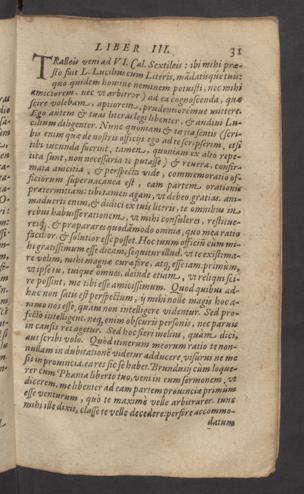 LIBER III. 31
TRalleis veni ad VI. Cal. Sextileis: ibi mihi præ-
sto fuit L. Lucilius cum Literis, mãdatisq́ue tuis:
quo quidem hominem neminem potuisti, nec mihi
amiciorem, nec vt arbitror) ad ea cognoscenda, quæ
scire volebam, aptiorem, prudentioremue mittere.
Ego autem & tuas literas legi libenter, & audiui Lu-
cilium diligenter. Nunc quoniam & tu ita sentis (scri-
bis enim quæ de nostris officiis ego ad te scripserim, etsi
tibi iucunda fuerint, tamen, quoniam ex alto repe-
tita sunt, non necessaria te putasse) & reuera, confir-
mata amicitia, & perspecta vide, commemoratio of-
ficiorum superuacanea est, eam partem orationis
prætermittam: tibi tamen agam, vt debeo gratias. ani-
maduerti enim, & didici ex tuis literis, te omnibus in
rebus habuisse rationem, vt mihi consuleres, restitue-
resq́, & præparares quodãmodo omnia, quo mea ratio
facilior, & solutior esse posset. Hoc tuum officiũ cum mi-
hi gratissimum esse dicam, sequitur illud, vt te existima-
re velim, mihi magnæ curæ fore, atq́, esse iam primùm,
vt ipse tu, tuique omnes, deinde etiam, vt reliqui sci-
re possint, me tibi esse amicissimum. Quod quibus ad-
huc non satis est perspectum, ij mihi nolle magis hoc a-
nimo nos esse, quàm non intelligere videntur. Sed pro-
fectò intelligent. neq́, enim obscuris personis, nec paruis
in causis res agetur. Sed hoc fieri melius, quàm dici,
aut scribi volo. Quòd itinerum meorum ratio te non-
nullam in dubitationẽ videtur adducere, visurus ne me
sis in prouincia. ea res sic se habet. Brundusij cum loque-
rer cum Phania liberto tuo, veni in eum sermonem, vt
dicerem, me libenter ad eam partem prouinciæ primùm
esse venturum, quò te maximè velle arbitrarer. tunc
mihi ille dixit, classe te velle decedere: perfore accommo-
datum